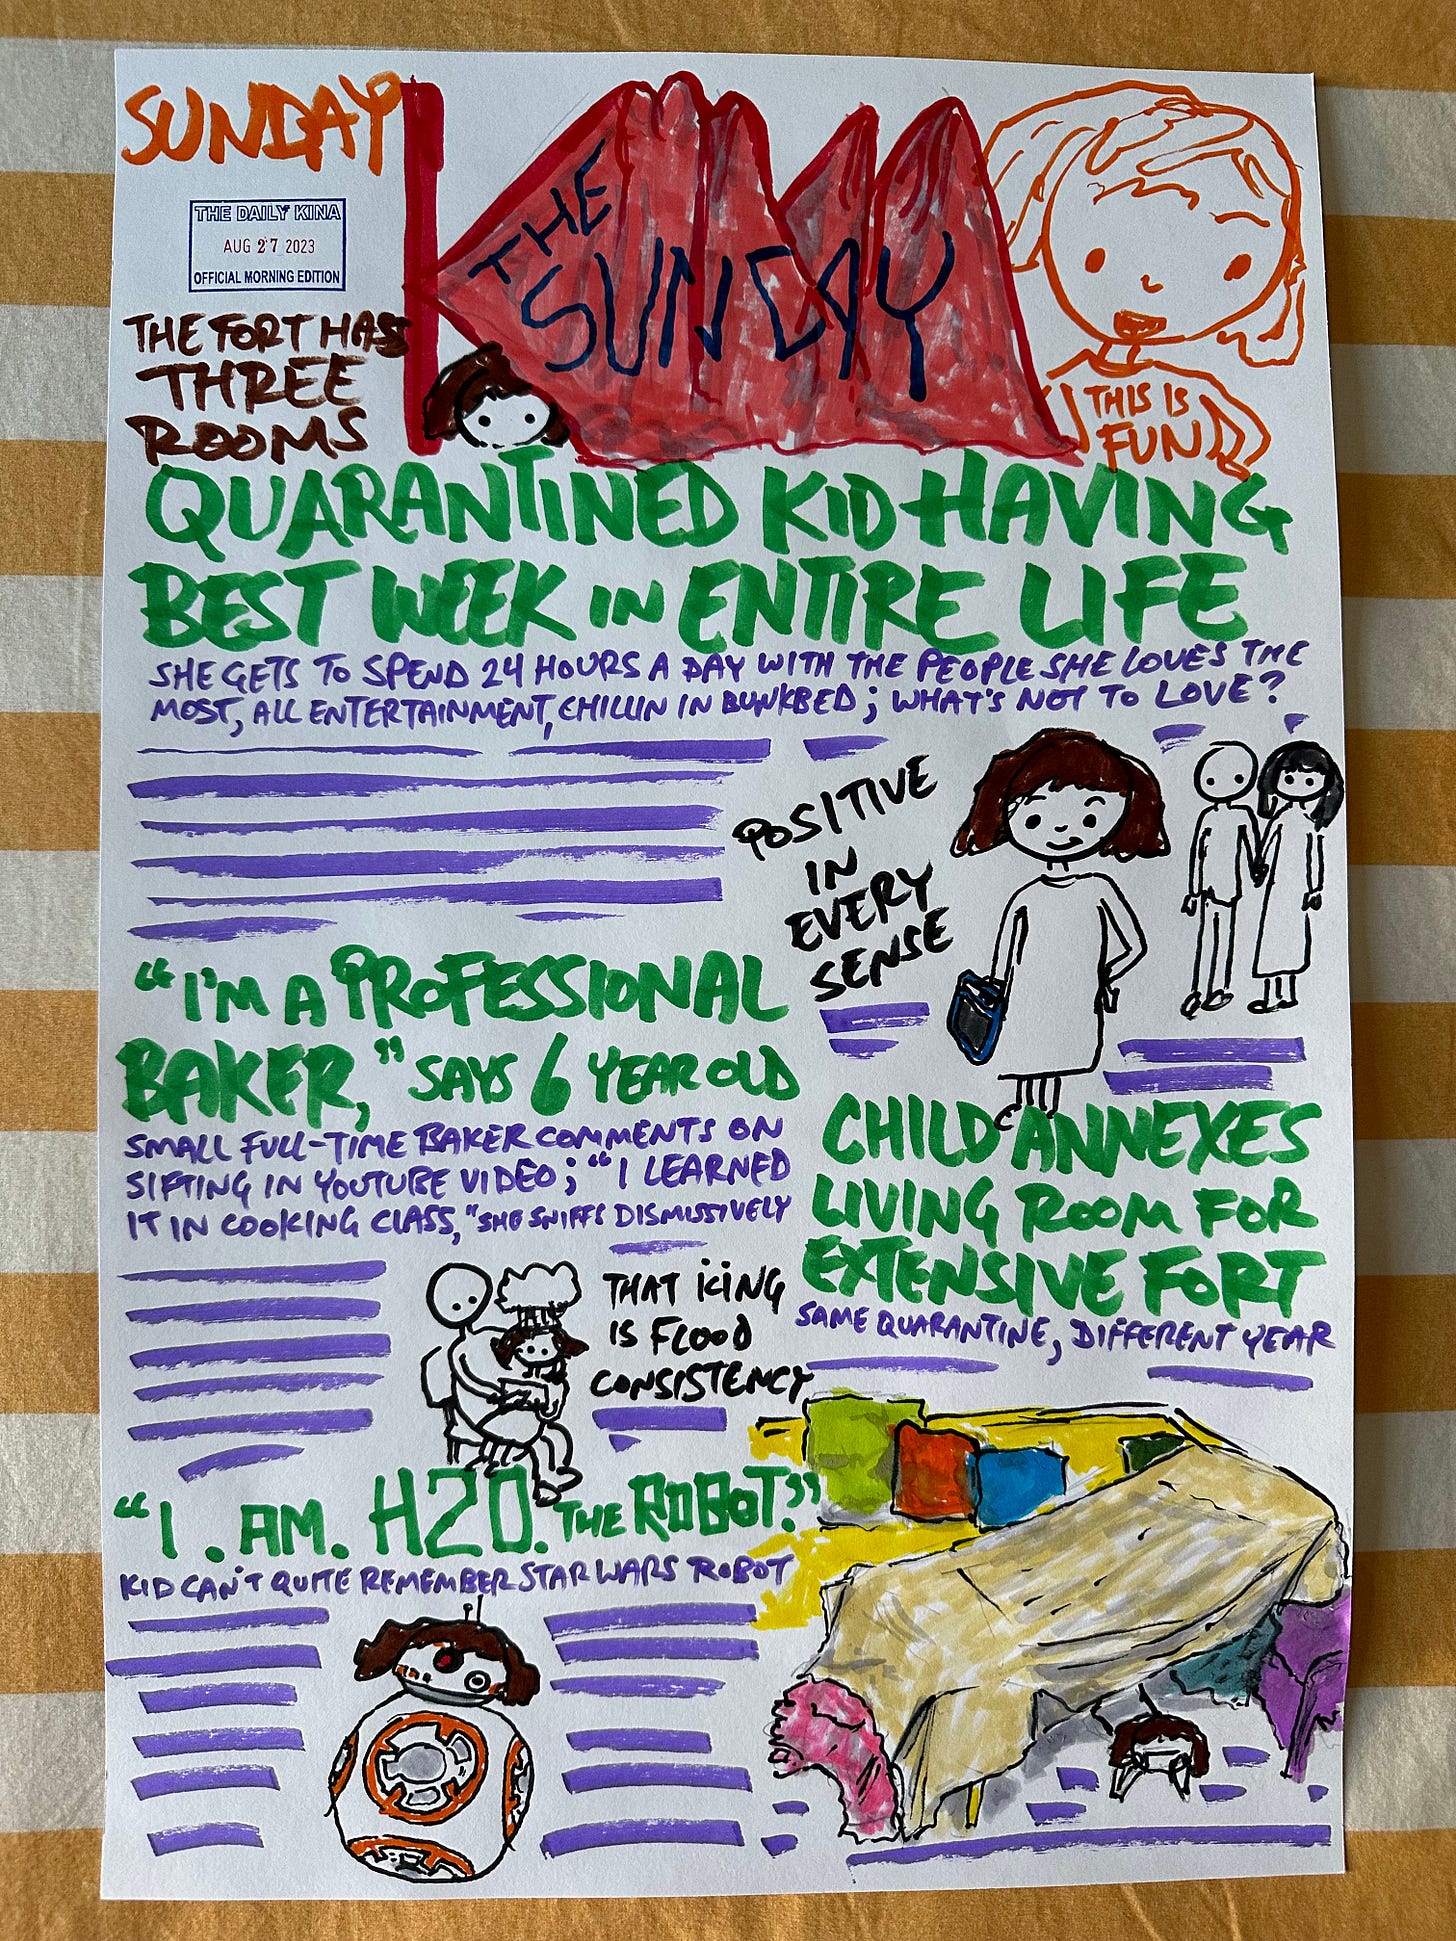 SUNDAY
THE DAILY KINA
AUG 27 2023
OFFICIAL MORNING EDITION
THE FORT HAS
THREE
ROOMS
KINA
THE
SUNDAY
THIS IS
FUN
QUARANTINED KID HAVING
BEST WEEK IN ENTIRE LIFE
SHE GETS TO SPEND 24 HOURS A DAY WITH THE PEOPLE SHE LOVES THE
MOST, ALL ENTERTAINMENT, CHILLIN IN BUNKBED; WHAT'S NOT TO LOVE?
POSITIVE
IN
EVERY
SENSE
"I'M A PROFESSIONAL
BAKER," SAYS 6 YEAR OLD
SMALL FULL-TIME BAKER COMMENTS ON
SIFTING IN YOUTUBE VIDEO; "I LEARNED
IT IN COOKING CLASS," SHE SNIFFS DISMISSIVELY
THAT ICING
IS FLOOD
CONSISTENCY
CHILD ANNEXES
LIVING ROOM FOR
EXTENSIVE FORT
SAME QUARANTINE, DIFFERENT YEAR
"I. AM. H2O. THE ROBOT?"
KID CAN'T QUITE REMEMBER STAR WARS ROBOT